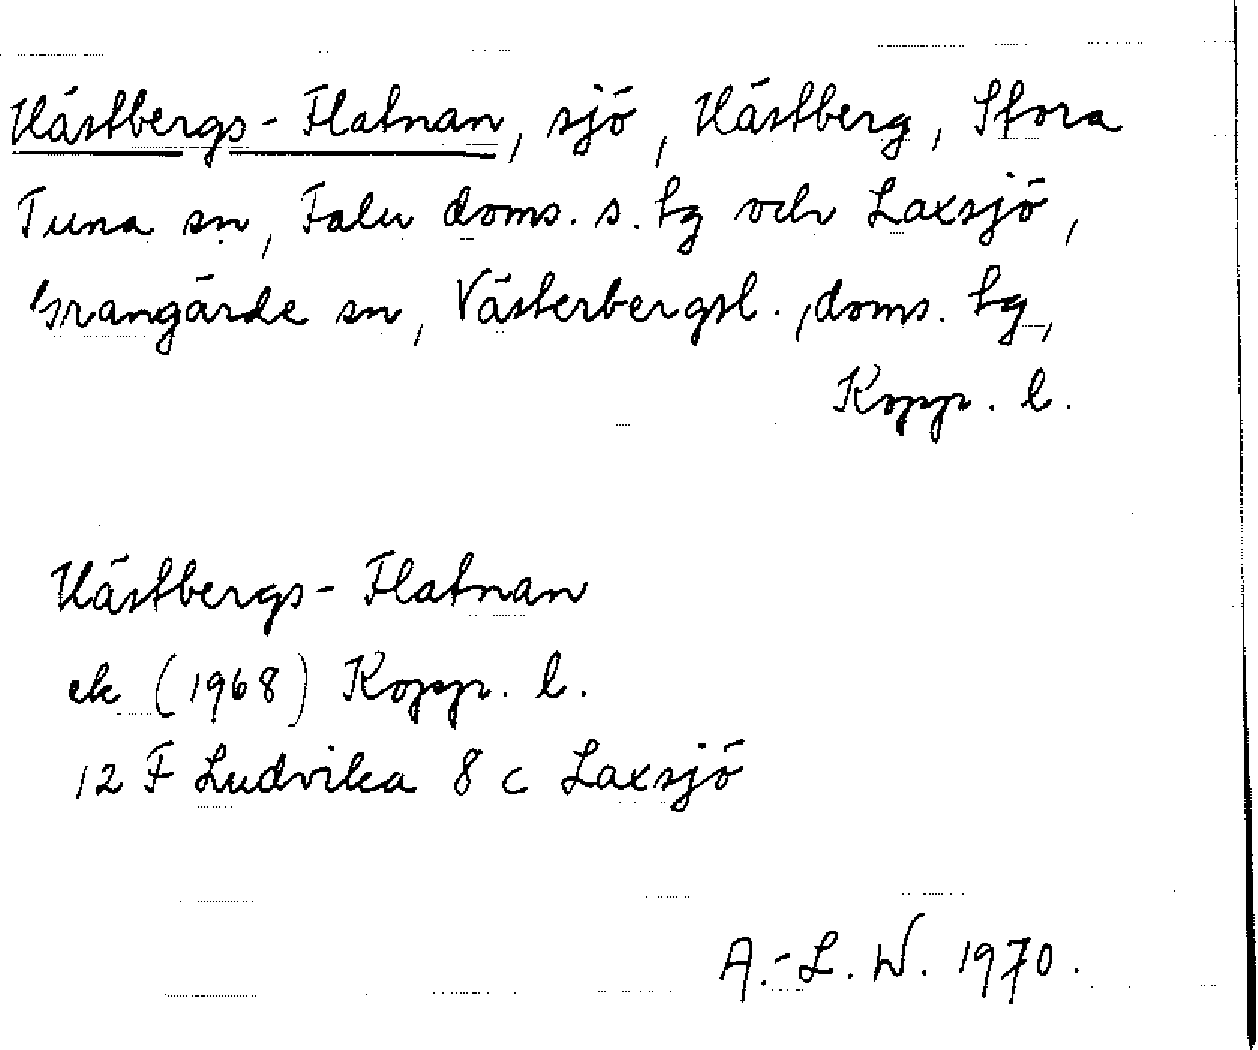 Hästbergs-Flatnan, sjö, Hästberg, Stora
Tuna sn, Falu doms. s. tg och Laxsjö,
Grangärde sn, Västerbergsl., doms. tg,
Kopp. l.
Hästbergs-Flatnan
ek (1968) Kopp. l.
12 F Ludvika 8 c Laxsjö
A.-L. W. 1970.